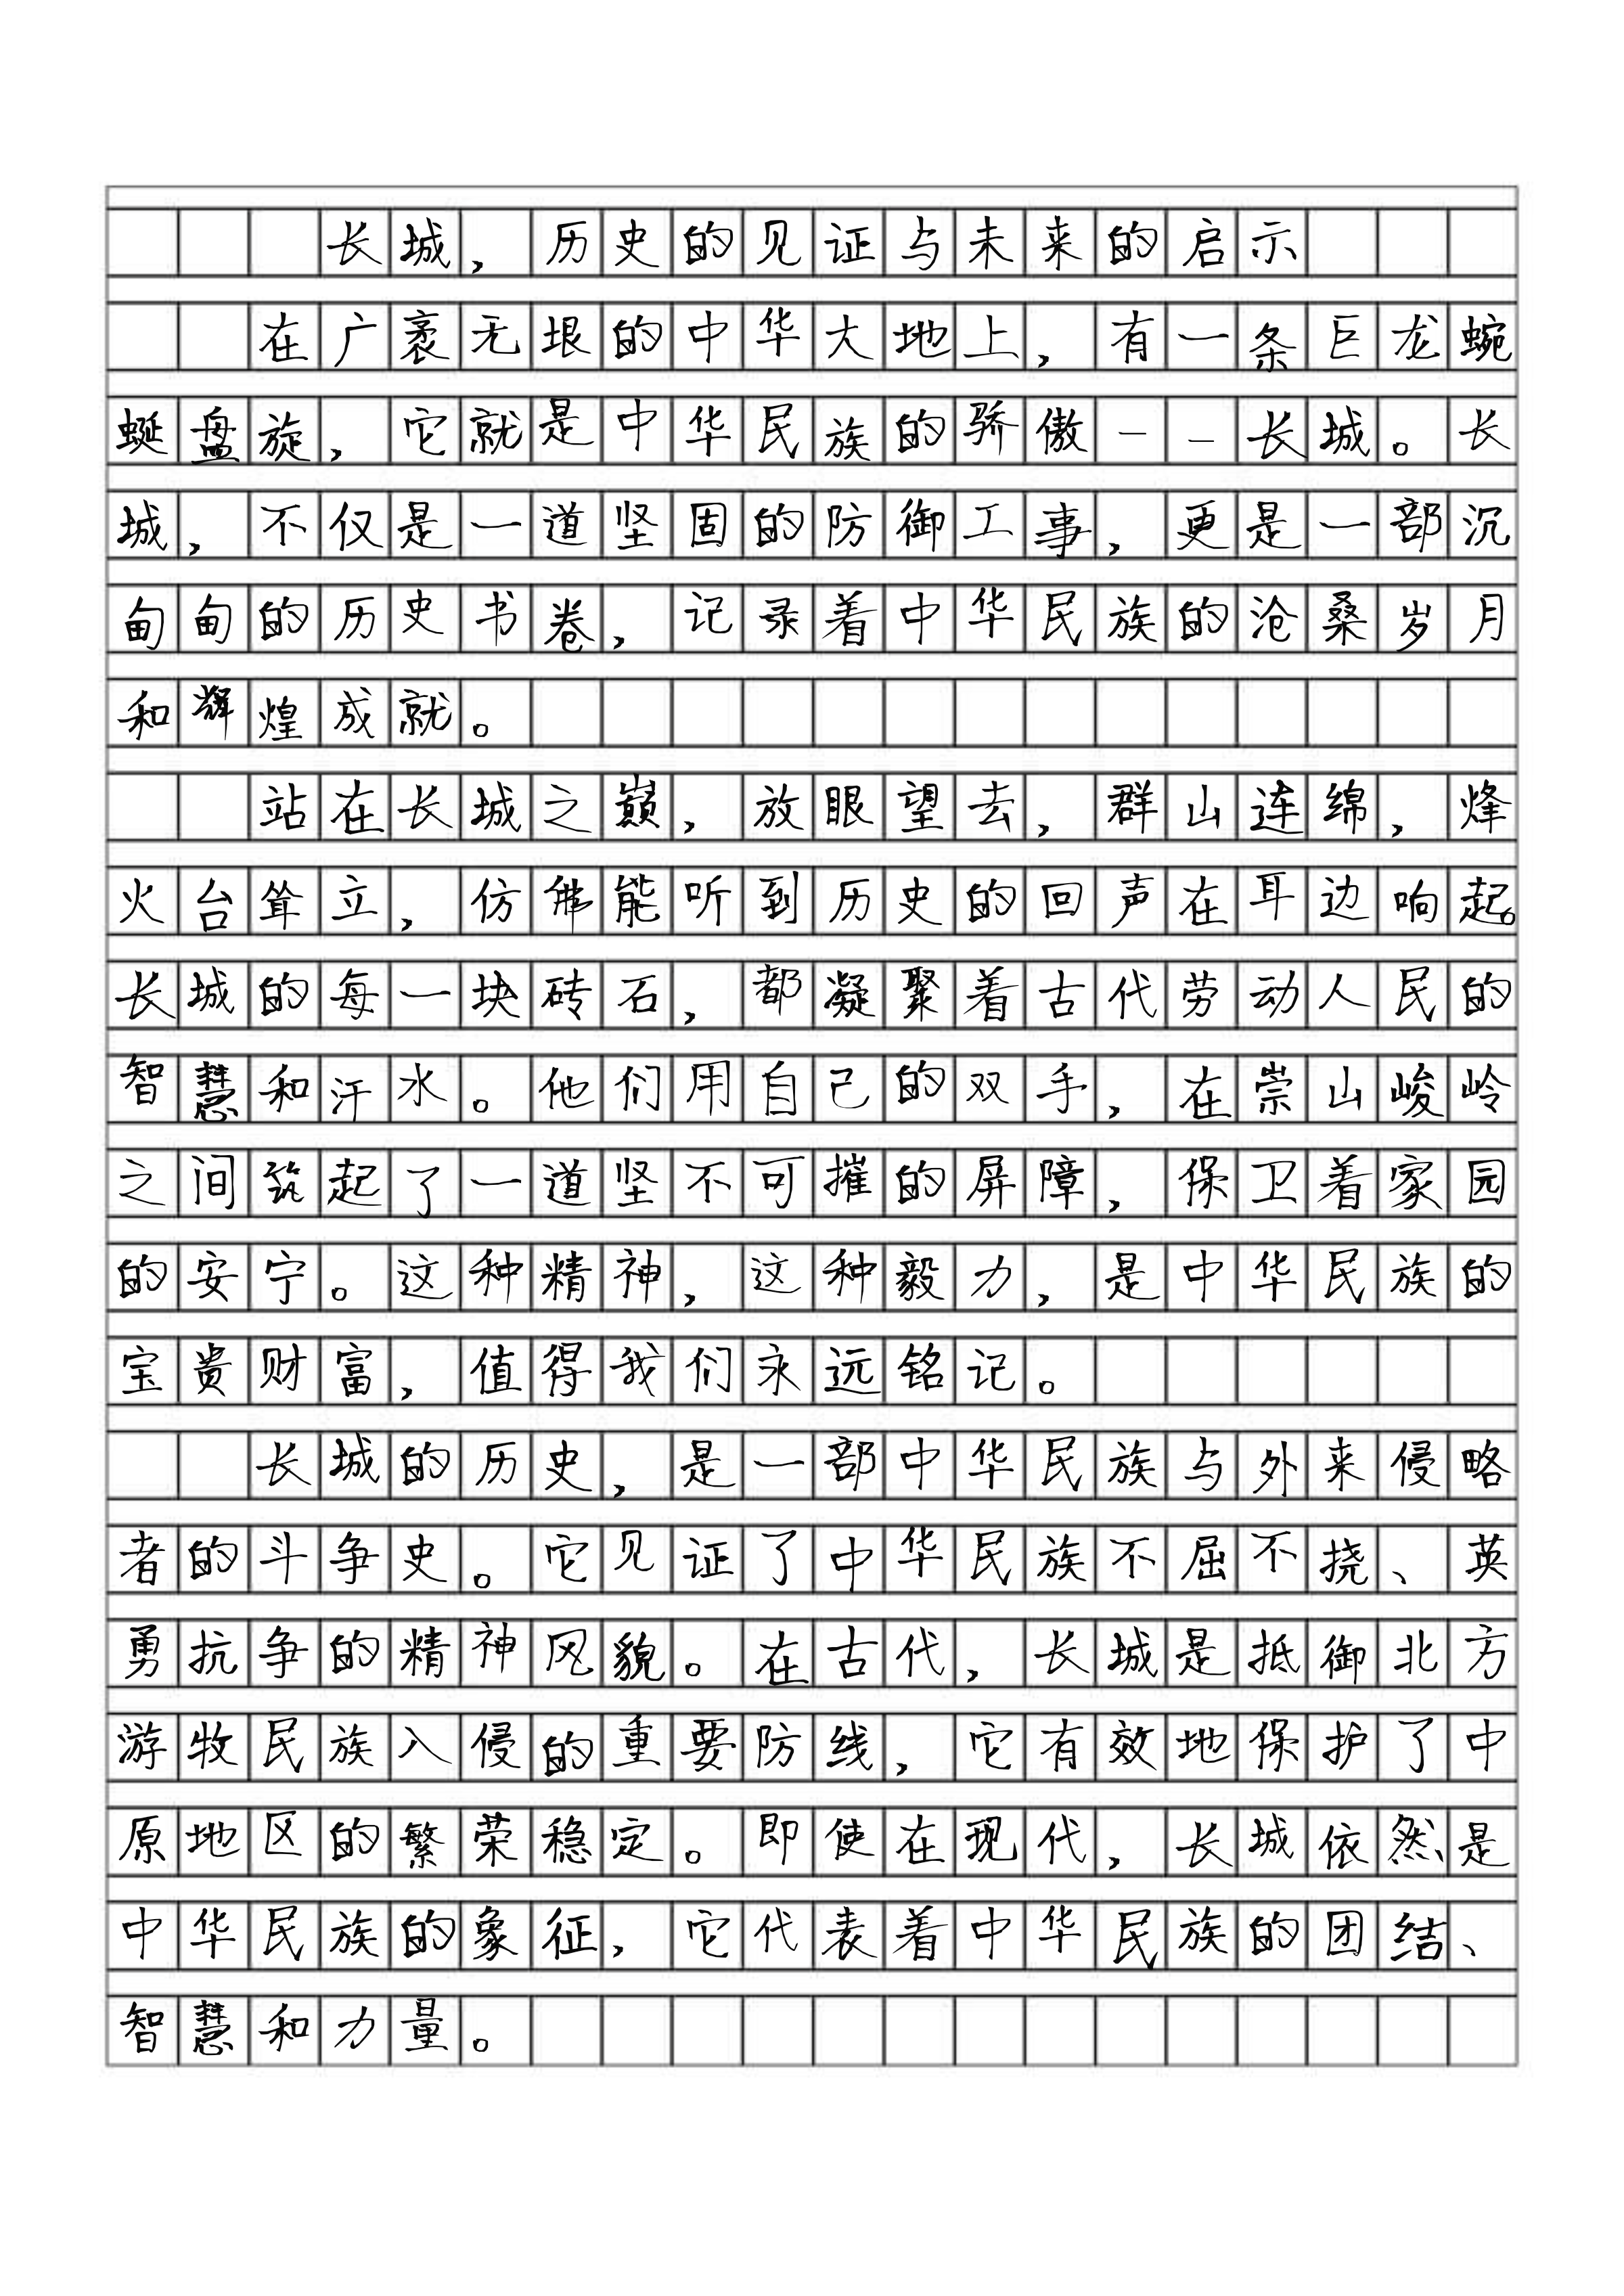 长城，历史的见证与未来的启示
在广袤无垠的中华大地上，有一条巨龙蜿
蜒盘旋，它就是中华民族的骄傲——长城。长
城，不仅是一道坚固的防御工事，更是一部沉
甸甸的历史书卷，记录着中华民族的沧桑岁月
和辉煌成就。
站在长城之巅，放眼望去，群山连绵，烽
火台耸立，仿佛能听到历史的回声在耳边响起。
长城的每一块砖石，都凝聚着古代劳动人民的
智慧和汗水。他们用自己的双手，在崇山峻岭
之间筑起了一道坚不可摧的屏障，保卫着家园
的安宁。这种精神，这种毅力，是中华民族的
宝贵财富，值得我们永远铭记。
长城的历史，是一部中华民族与外来侵略
者的斗争史。它见证了中华民族不屈不挠、英
勇抗争的精神风貌。在古代，长城是抵御北方
游牧民族入侵的重要防线，它有效地保护了中
原地区的繁荣稳定。即使在现代，长城依然是
中华民族的象征，它代表着中华民族的团结、
智慧和力量。